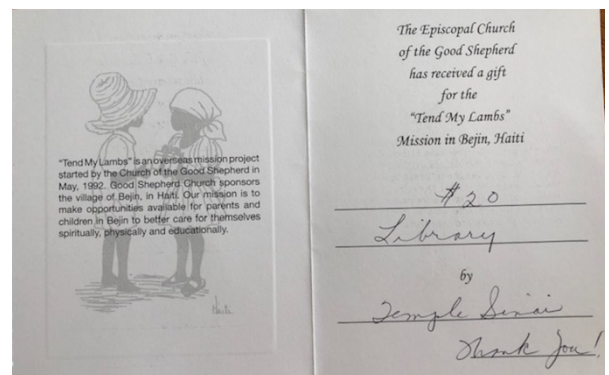 "Tend My Lambs" is an overseas mission project
started by the Church of the Good Shepherd in
May, 1992. Good Shepherd Church sponsors
the village of Bejin, in Haiti. Our mission is to
make opportunities available for parents and
children in Bejin to better care for themselves
spiritually, physically and educationally.
Haiti
The Episcopal Church
of the Good Shepherd
has received a gift
for the
"Tend My Lambs"
Mission in Bejin, Haiti
#20
Library
by
Temple Sinai
Thank You!